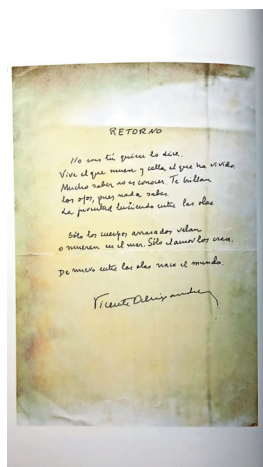 RETORNO
No eres tú quien lo dice.
Vive el que muere y calla el que ha vivido.
Mucho saber no es conocer. Te brillan
los ojos, pues nada sabes.
La juventud luciendo entre las olas
Sólo los cuerpos arrasados velan
o mueren en el mar. Sólo el amor los crea.
De nuevo entre las olas nace el mundo.
Vicente Aleixandre